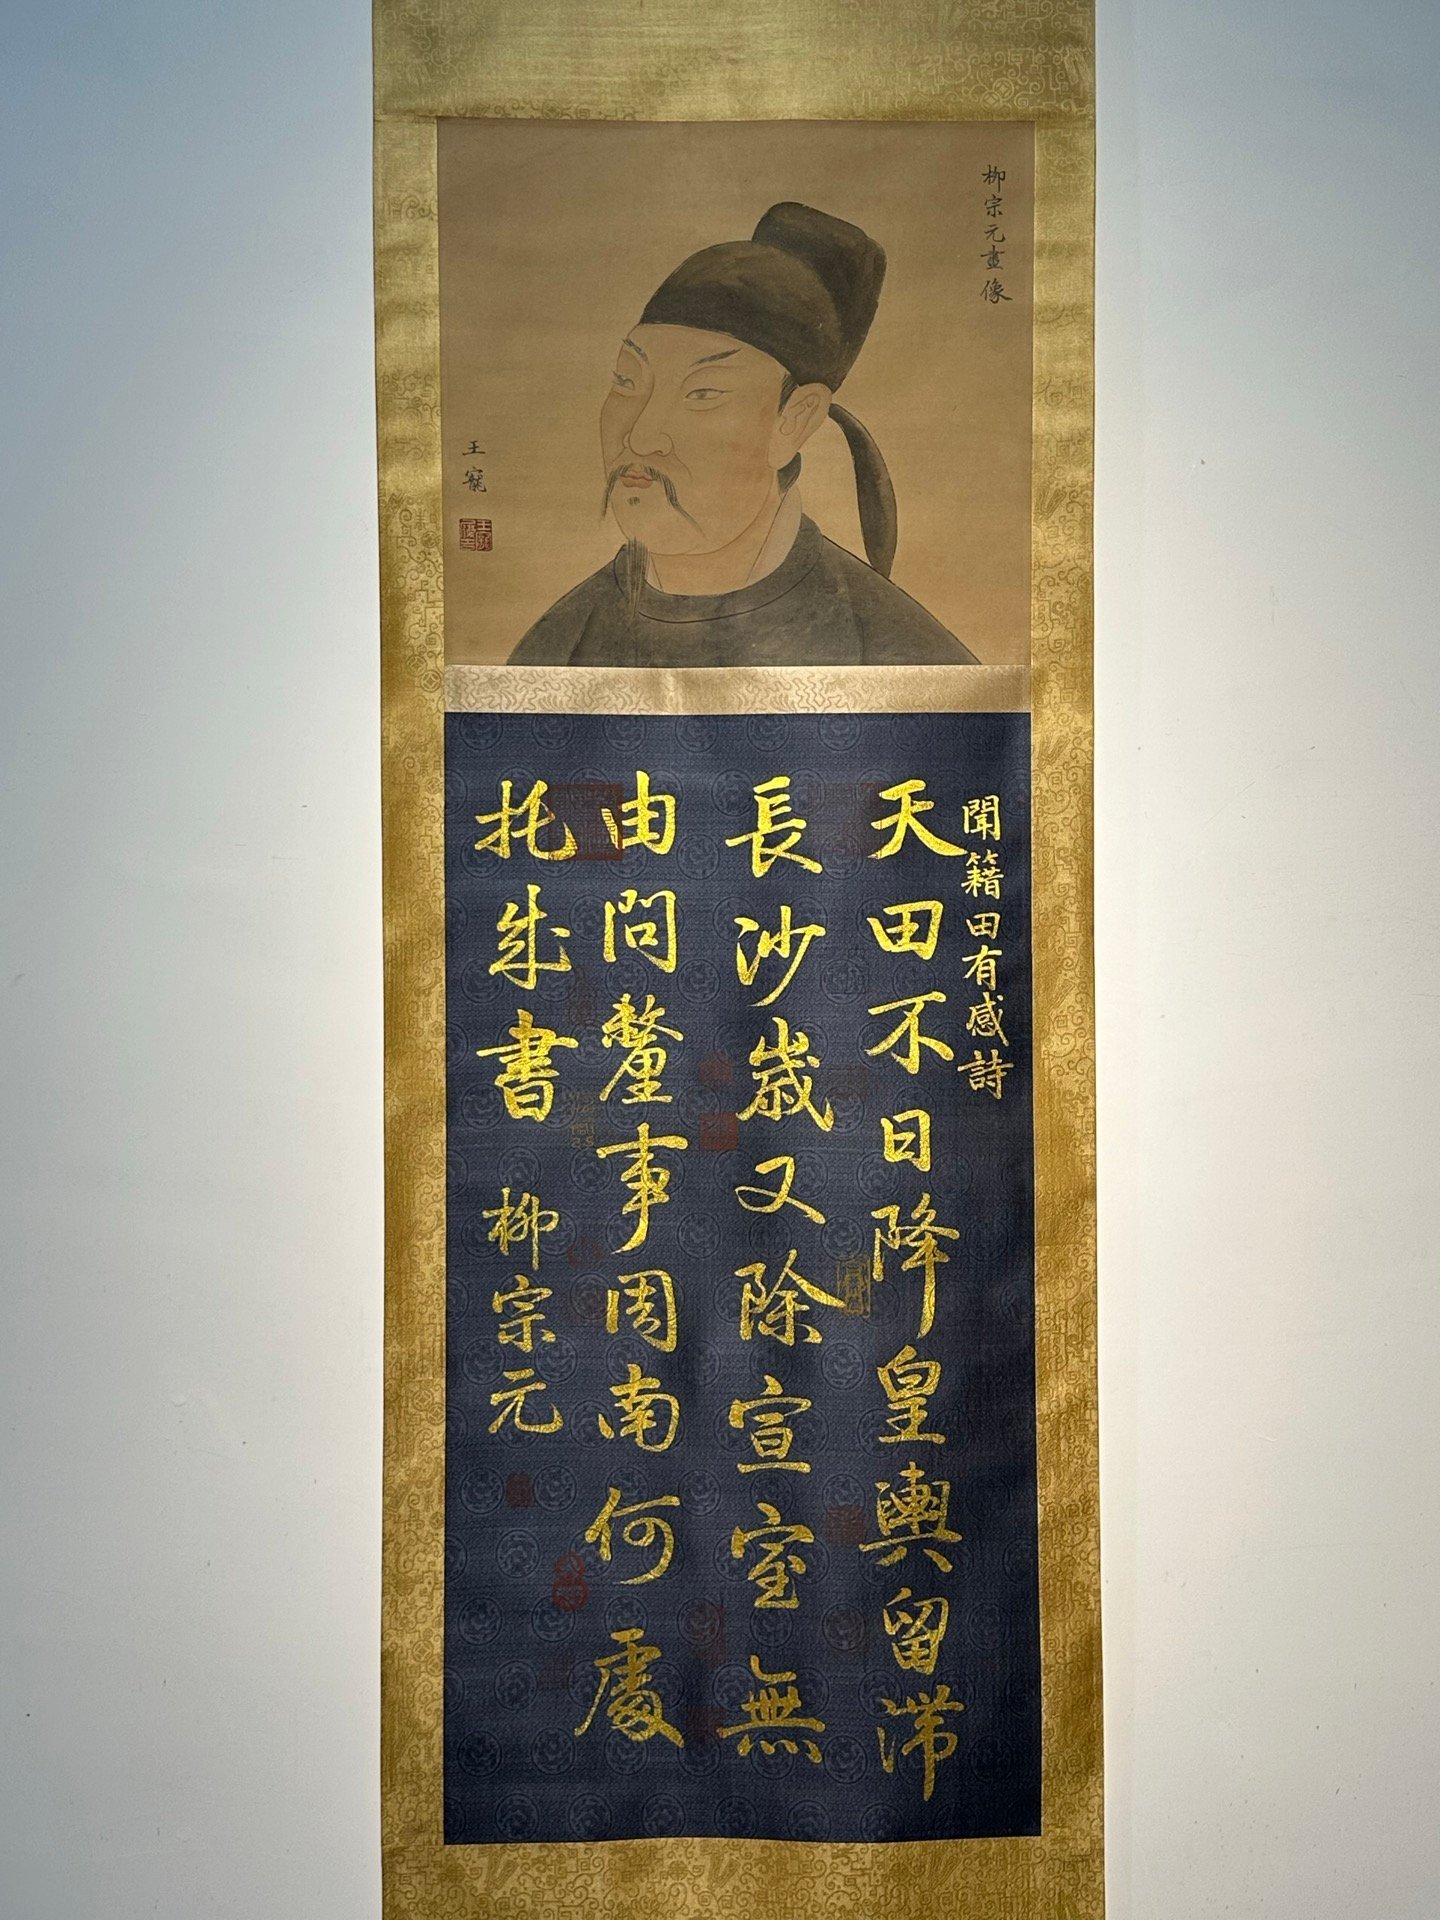 柳宗元畫像
王寵
聞籍田有感詩
天田不日降皇輿留滞
長沙歲又除宣室無
由問釐事周南何處
托成書 柳宗元